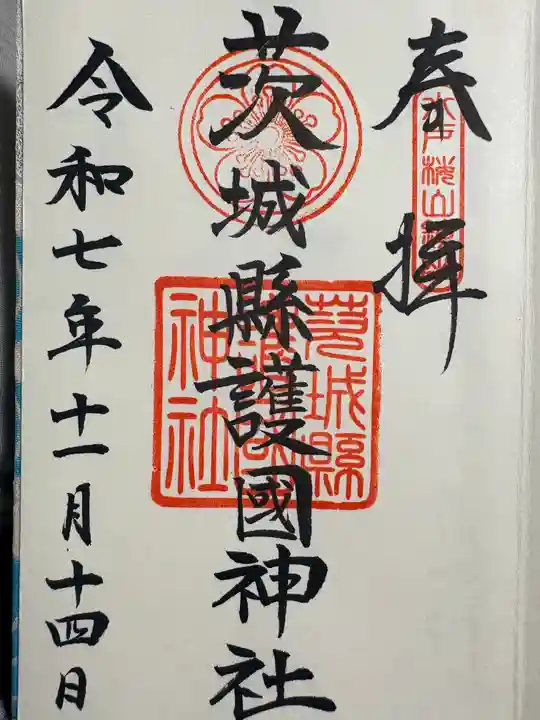 奉拝
水戸桜山鎮座
茨城縣護國神社
茨城縣
護國
神社
令和七年十一月十四日